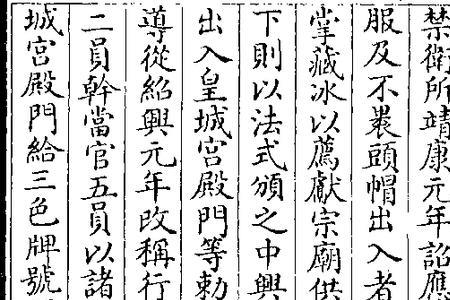 禁衛所靖康元年詔應
服及不裹頭帽出入者
掌藏冰以薦獻宗廟供
下則以法式頒之中興
出入皇城宮殿門等勅
導從紹興元年改稱行
二員幹當官五員以諸
城宮殿門給三色牌號